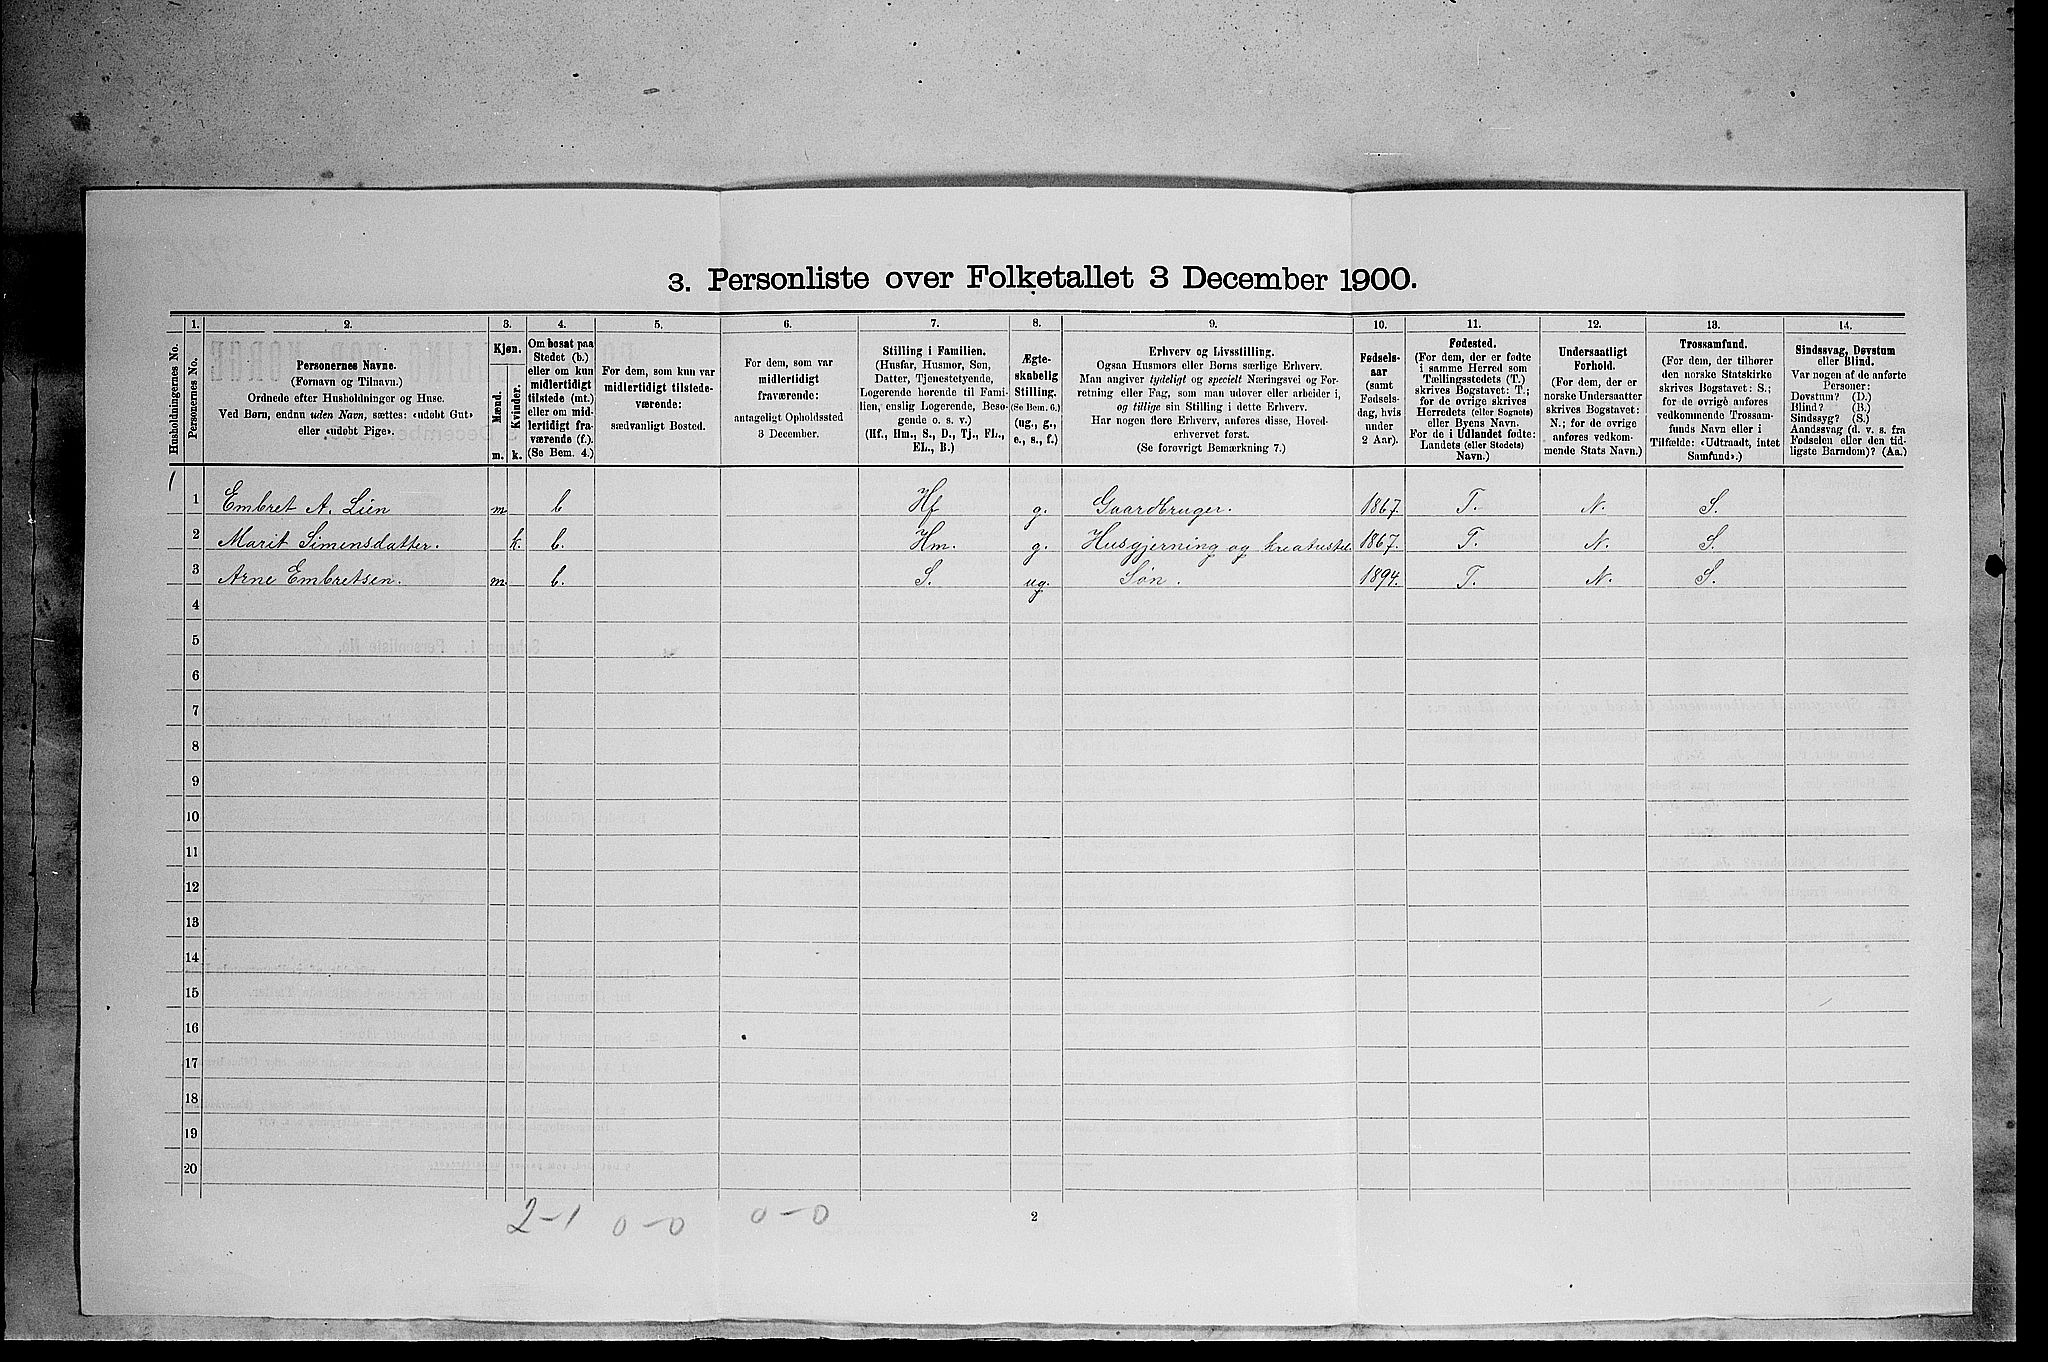 3. Personliste over Folketallet 3 December 1900.
Husholdningernes No.
1.
Personernes No.
2.
Personernes Navne.
(Fornavn og Tilnavn.)
Ordnede efter Husholdninger og Huse.
Ved Børn, endnu uden Navn, sættes: «udøbt Gut»
eller «udøbt Pige».
3.
Kjøn.
Mænd.
m.
Kvinder.
k.
4.
Om bosat paa
Stedet (b.)
eller om kun
midlertidigt
tilstede (mt.)
eller om mid-
lertidigt fra-
værende (f.).
(Se Bem. 4.)
5.
For dem, som kun var
midlertidigt tilstede-
værende:
sædvanligt Bosted.
6.
For dem, som var
midlertidigt
fraværende:
antageligt Opholdssted
3 December.
7.
Stilling i Familien.
(Husfar, Husmor, Søn,
Datter, Tjenestetyende,
Logerende hørende til Fami-
lien, enslig Logerende, Besø-
gende o. s. v.)
(Hf., Hm., S., D., Tj., FL.,
EL., B.)
8.
Ægte-
skabelig
Stilling.
(Se Bem. 6.)
(ug., g.,
e., s., f.)
9.
Erhverv og Livsstilling.
Ogsaa Husmors eller Børns særlige Erhverv.
Man angiver tydeligt og specielt Næringsvei og For-
retning eller Fag, som man udøver eller arbeider i,
og tillige sin Stilling i dette Erhverv.
Har nogen flere Erhverv, anføres disse, Hoved-
erhvervet først.
(Se forøvrigt Bemærkning 7.)
10.
Fødsels-
aar
(samt
Fødsels-
dag, hvis
under
2 Aar).
11.
Fødested.
(For dem, der er fødte
i samme Herred som
Tællingsstedets (T.)
skrives Bogstavet: T.;
for de øvrige skrives
Herredets (eller Sognets)
eller Byens Navn.
For de i Udlandet fødte:
Landets (eller Stedets)
Navn.)
12.
Undersaatligt
Forhold.
(For dem, der er
norske Undersaatter
skrives Bogstavet:
N.; for de øvrige
anføres vedkom-
mende Stats Navn.)
13.
Trossamfund.
(For dem, der tilhører
den norske Statskirke
skrives Bogstavet: S.;
for de øvrige anføres
vedkommende Trossam-
funds Navn eller i
Tilfælde: «Udtraadt, intet
Samfund».)
14.
Sindssvag, Døvstum
eller Blind.
Var nogen af de anførte
Personer:
Døvstum? (D.)
Blind? (B.)
Sindssyg? (S.)
Aandssvag (d. v. s. fra
Fødselen eller den tid-
ligste Barndom)? (Aa.)
1
1 Embret A. Lien m. b Hf g. Gaardbruger. 1867. T. N. S.
2 Marit Simensdatter. k. b. Hm. g. Husgjerning og kreaturstel. 1867. T. N. S.
3 Arne Embretsen. m. b. S. ug. Søn. 1894. T. N. S.
4
5
6
7
8
9
10
11
12
13
14
15
16
17
18
19
20
2-1 0-0 0-0
2